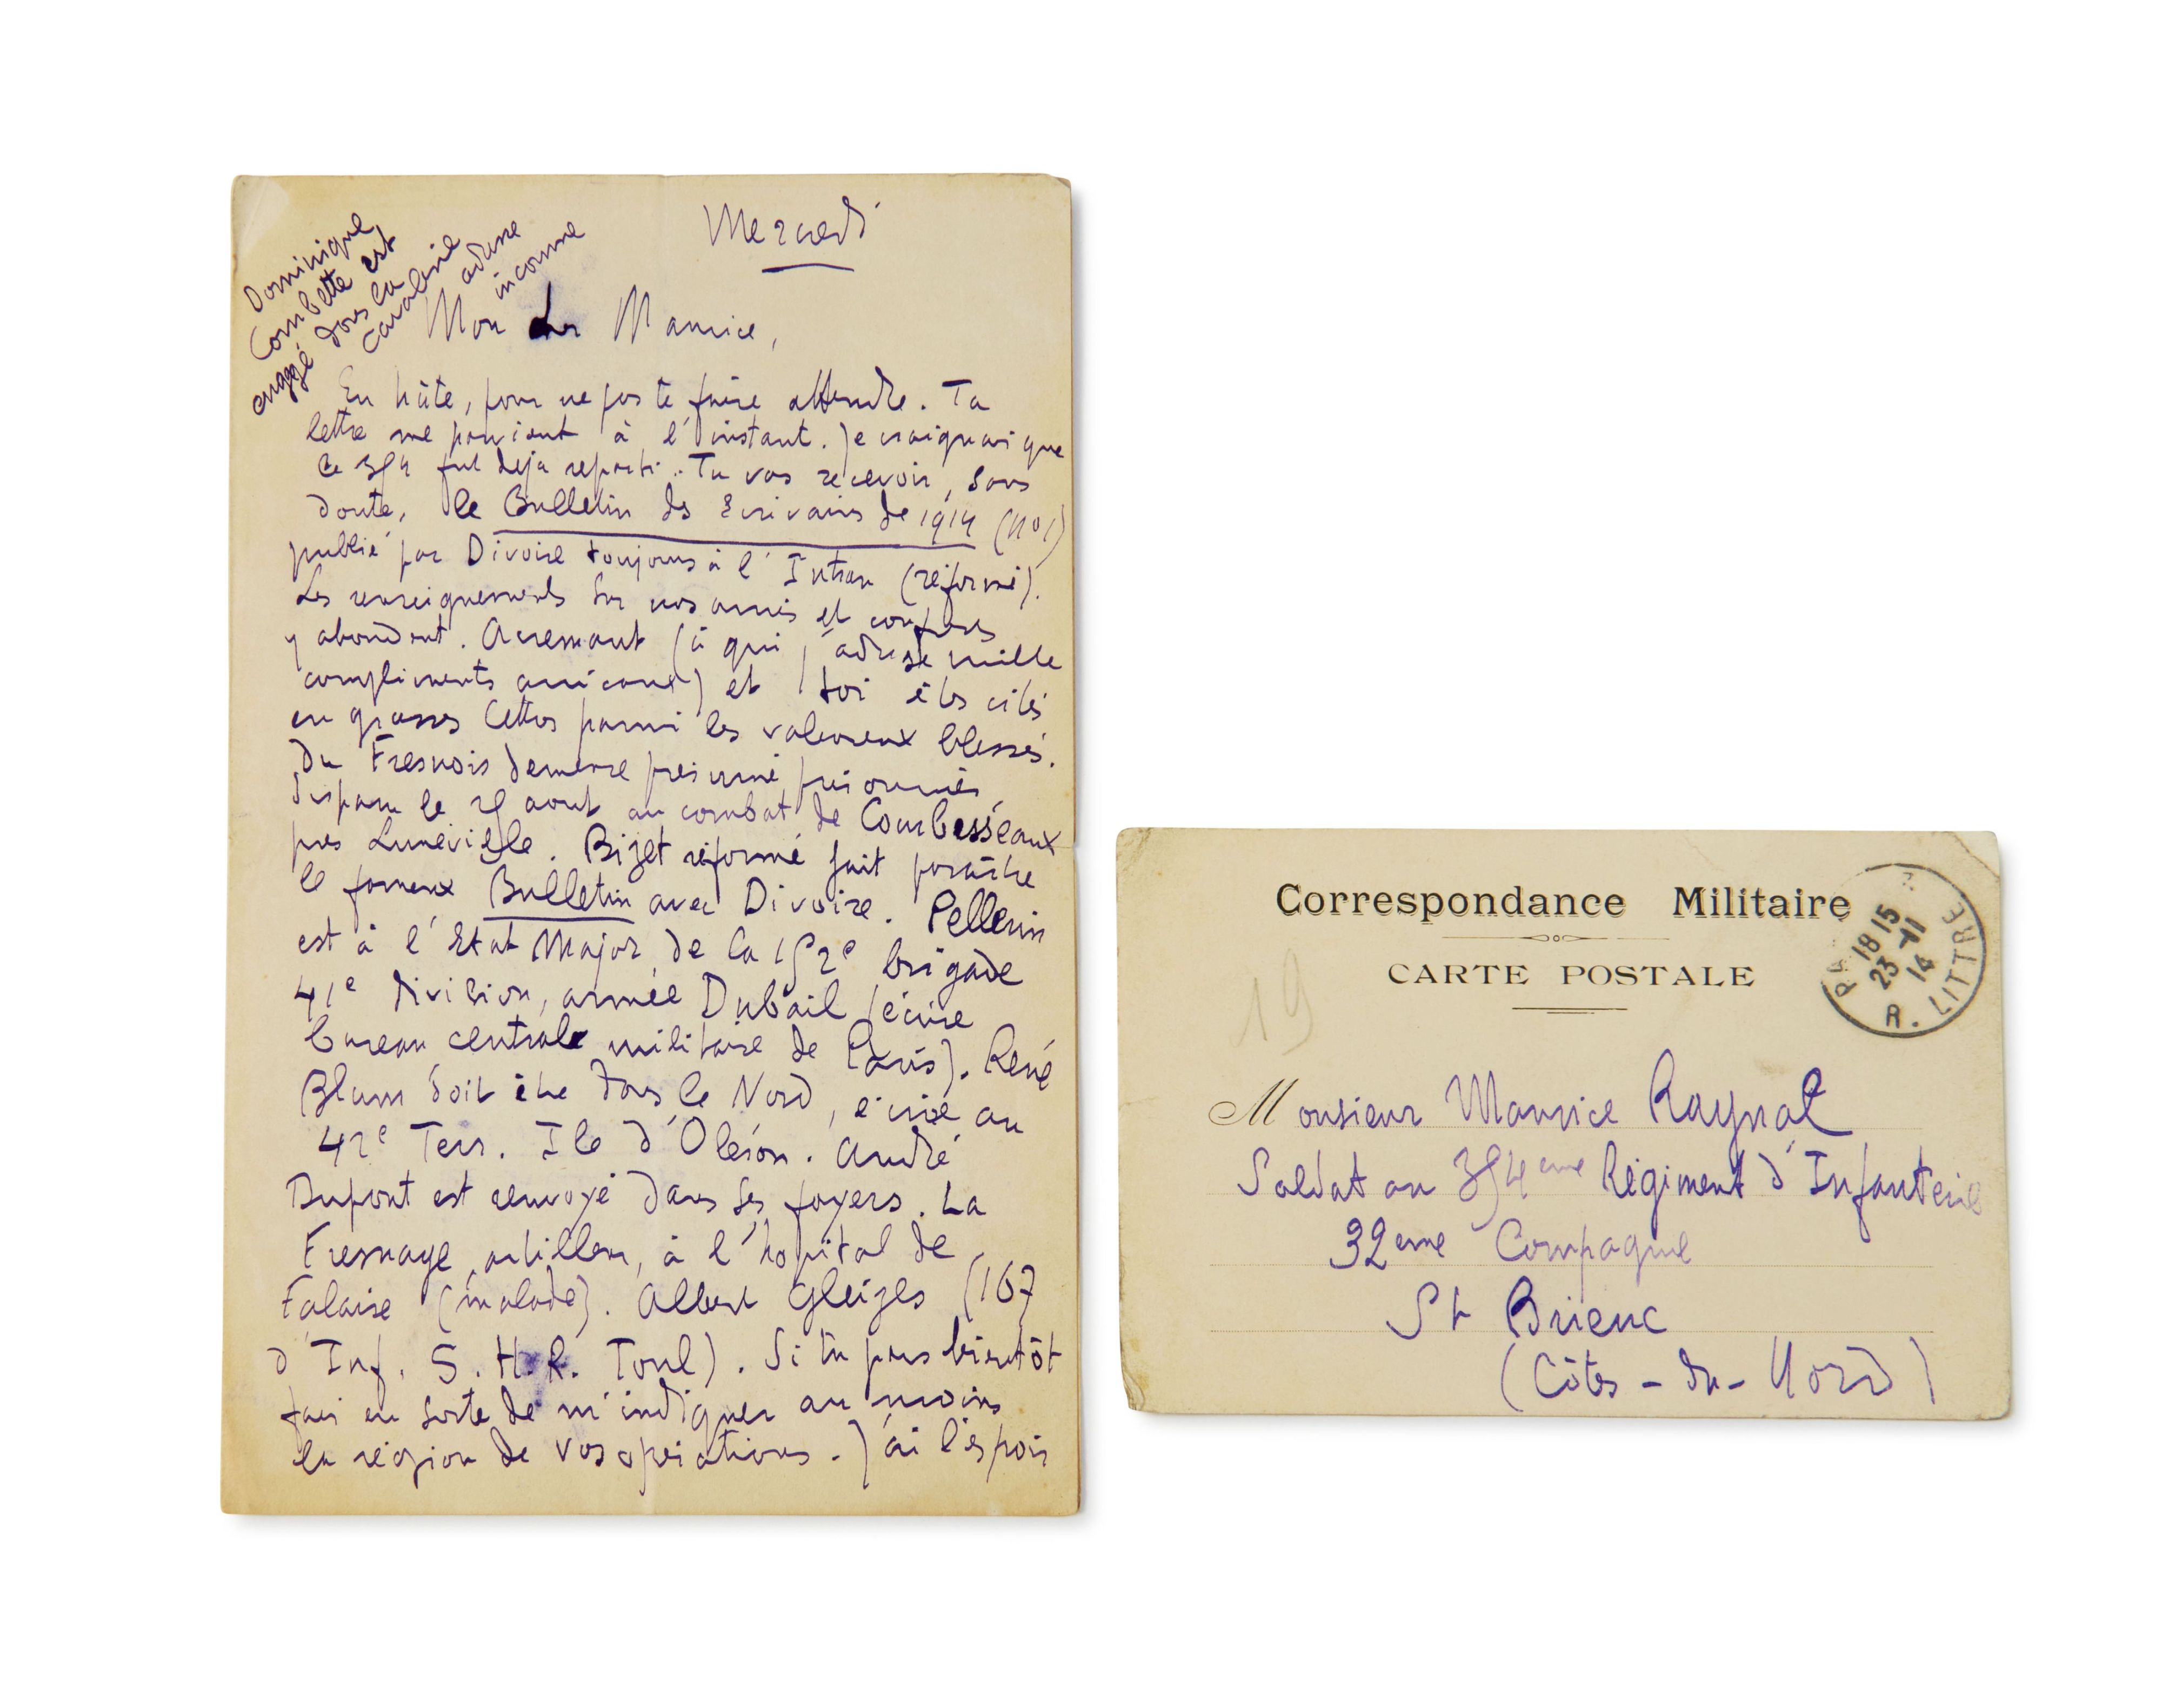 Mercredi
Dominique
Combette est
engagé dans la
cavalerie
adresse
inconnue
Mon cher Maurice,
En hâte, pour ne pas te faire attendre. Ta
lettre me parvient à l'instant. Je craignais que
le 354 fut déjà reparti. Tu vas recevoir, sans
doute, le Bulletin des Ecrivains de 1914 (no 1)
publié par Divoire toujours à l'Intran (réformé).
Les renseignements sur nos amis et confrères
y abondent. Acremant (à qui j'adresse mille
compliments amicaux) et toi êtes cités
en grasses lettres parmi les valeureux blessés.
Du Fresnois demeure présumé prisonnier,
disparu le 25 aout au combat de Courbesséaux
près Lunéville. Bizet réformé fait paraître
le fameux Bulletin avec Divoire. Pellerin
est à l'Etat Major de la 152e brigade
41e division, armée Dubail (écrire
bureau central militaire de Paris). René
Blum doit être dans le Nord, écrire au
42e Terr. Ile d'Oléron. André
Dupont est renvoyé dans ses foyers. La
Fresnaye, artilleur, à l'hôpital de
Falaise (malade). Albert Gleizes (167
d'Inf. S. H. R. Toul). Si tu pars bientôt
fais en sorte de m'indiquer au moins
la région de vos opérations. J'ai l'espoir
Correspondance Militaire
CARTE POSTALE
18 15
23 -11
14
R. LITTRE
19
Monsieur Maurice Raynal
Soldat au 354eme Régiment d'Infanterie
32eme Compagnie
St Brieuc
(Côtes-du-Nord)